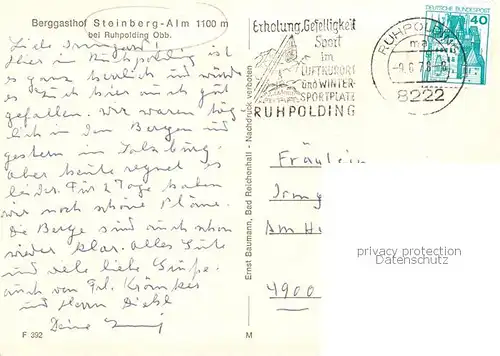 Berggasthof Steinberg-Alm 1100 m
bei Ruhpolding Obb.
Liebe Irmgard!
Hier in Ruhpolding ist
es ganz herrlich und würde
es Dich hier auch gut
gefallen. Wir waren täg
lich in den Bergen und
gestern in Salzburg.
Aber heute regnet es
leider. Für 2 Tage haben
wir noch schöne Pläne.
Die Berge sind auch schon
wieder klar. Alles Gute
und viele liebe Grüße.
auch von Frl.
und Herrn
Deine
F 392
Ernst Baumann, Bad Reichenhall - Nachdruck verboten
M
Erholung, Geselligkeit
Sport
im
LUFTKURORT
und WINTER-
SPORTPLATZ
RUHPOLDING
RUHPOLDING
-9.6.78
8222
DEUTSCHE BUNDESPOST
40
Fräulein
Irmg
Am H
4900
privacy protection
Datenschutz